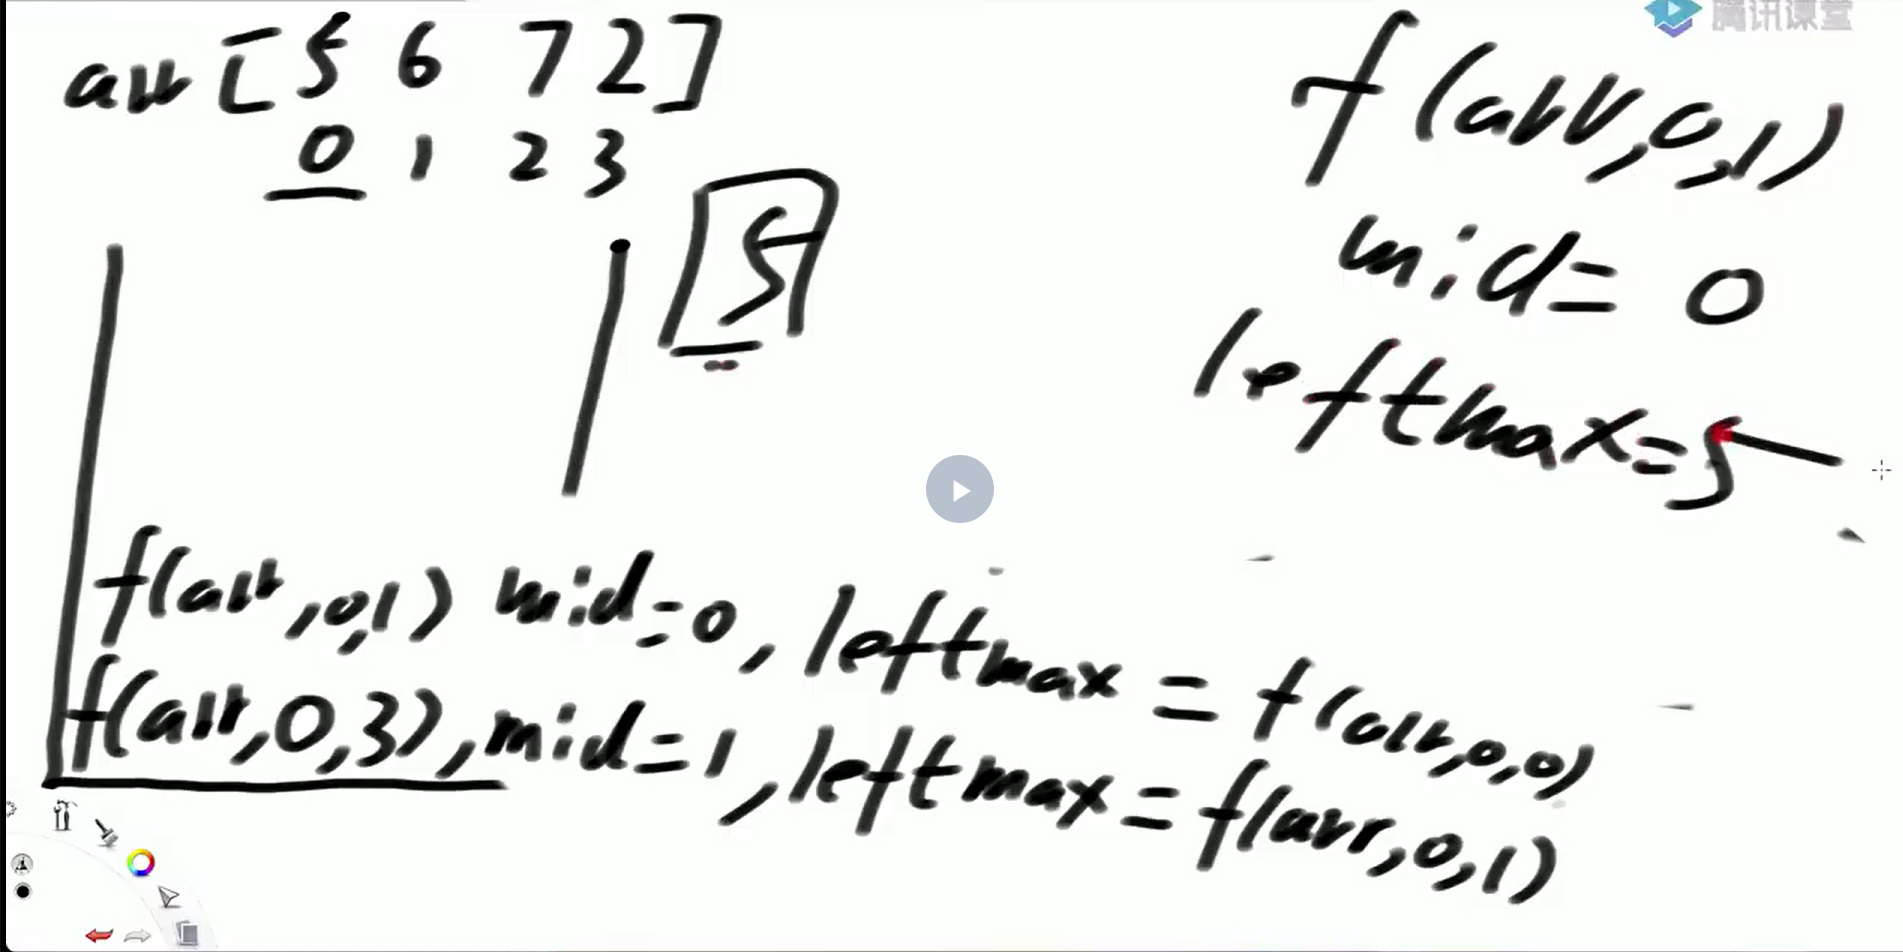 腾讯课堂
arr [5 6 7 2]
0 1 2 3
5
f(arr,0,1)
mid=0
leftmax=5
f(arr,0,1) mid=0, leftmax = f(arr,0,0)
f(arr,0,3), mid=1, leftmax = f(arr,0,1)